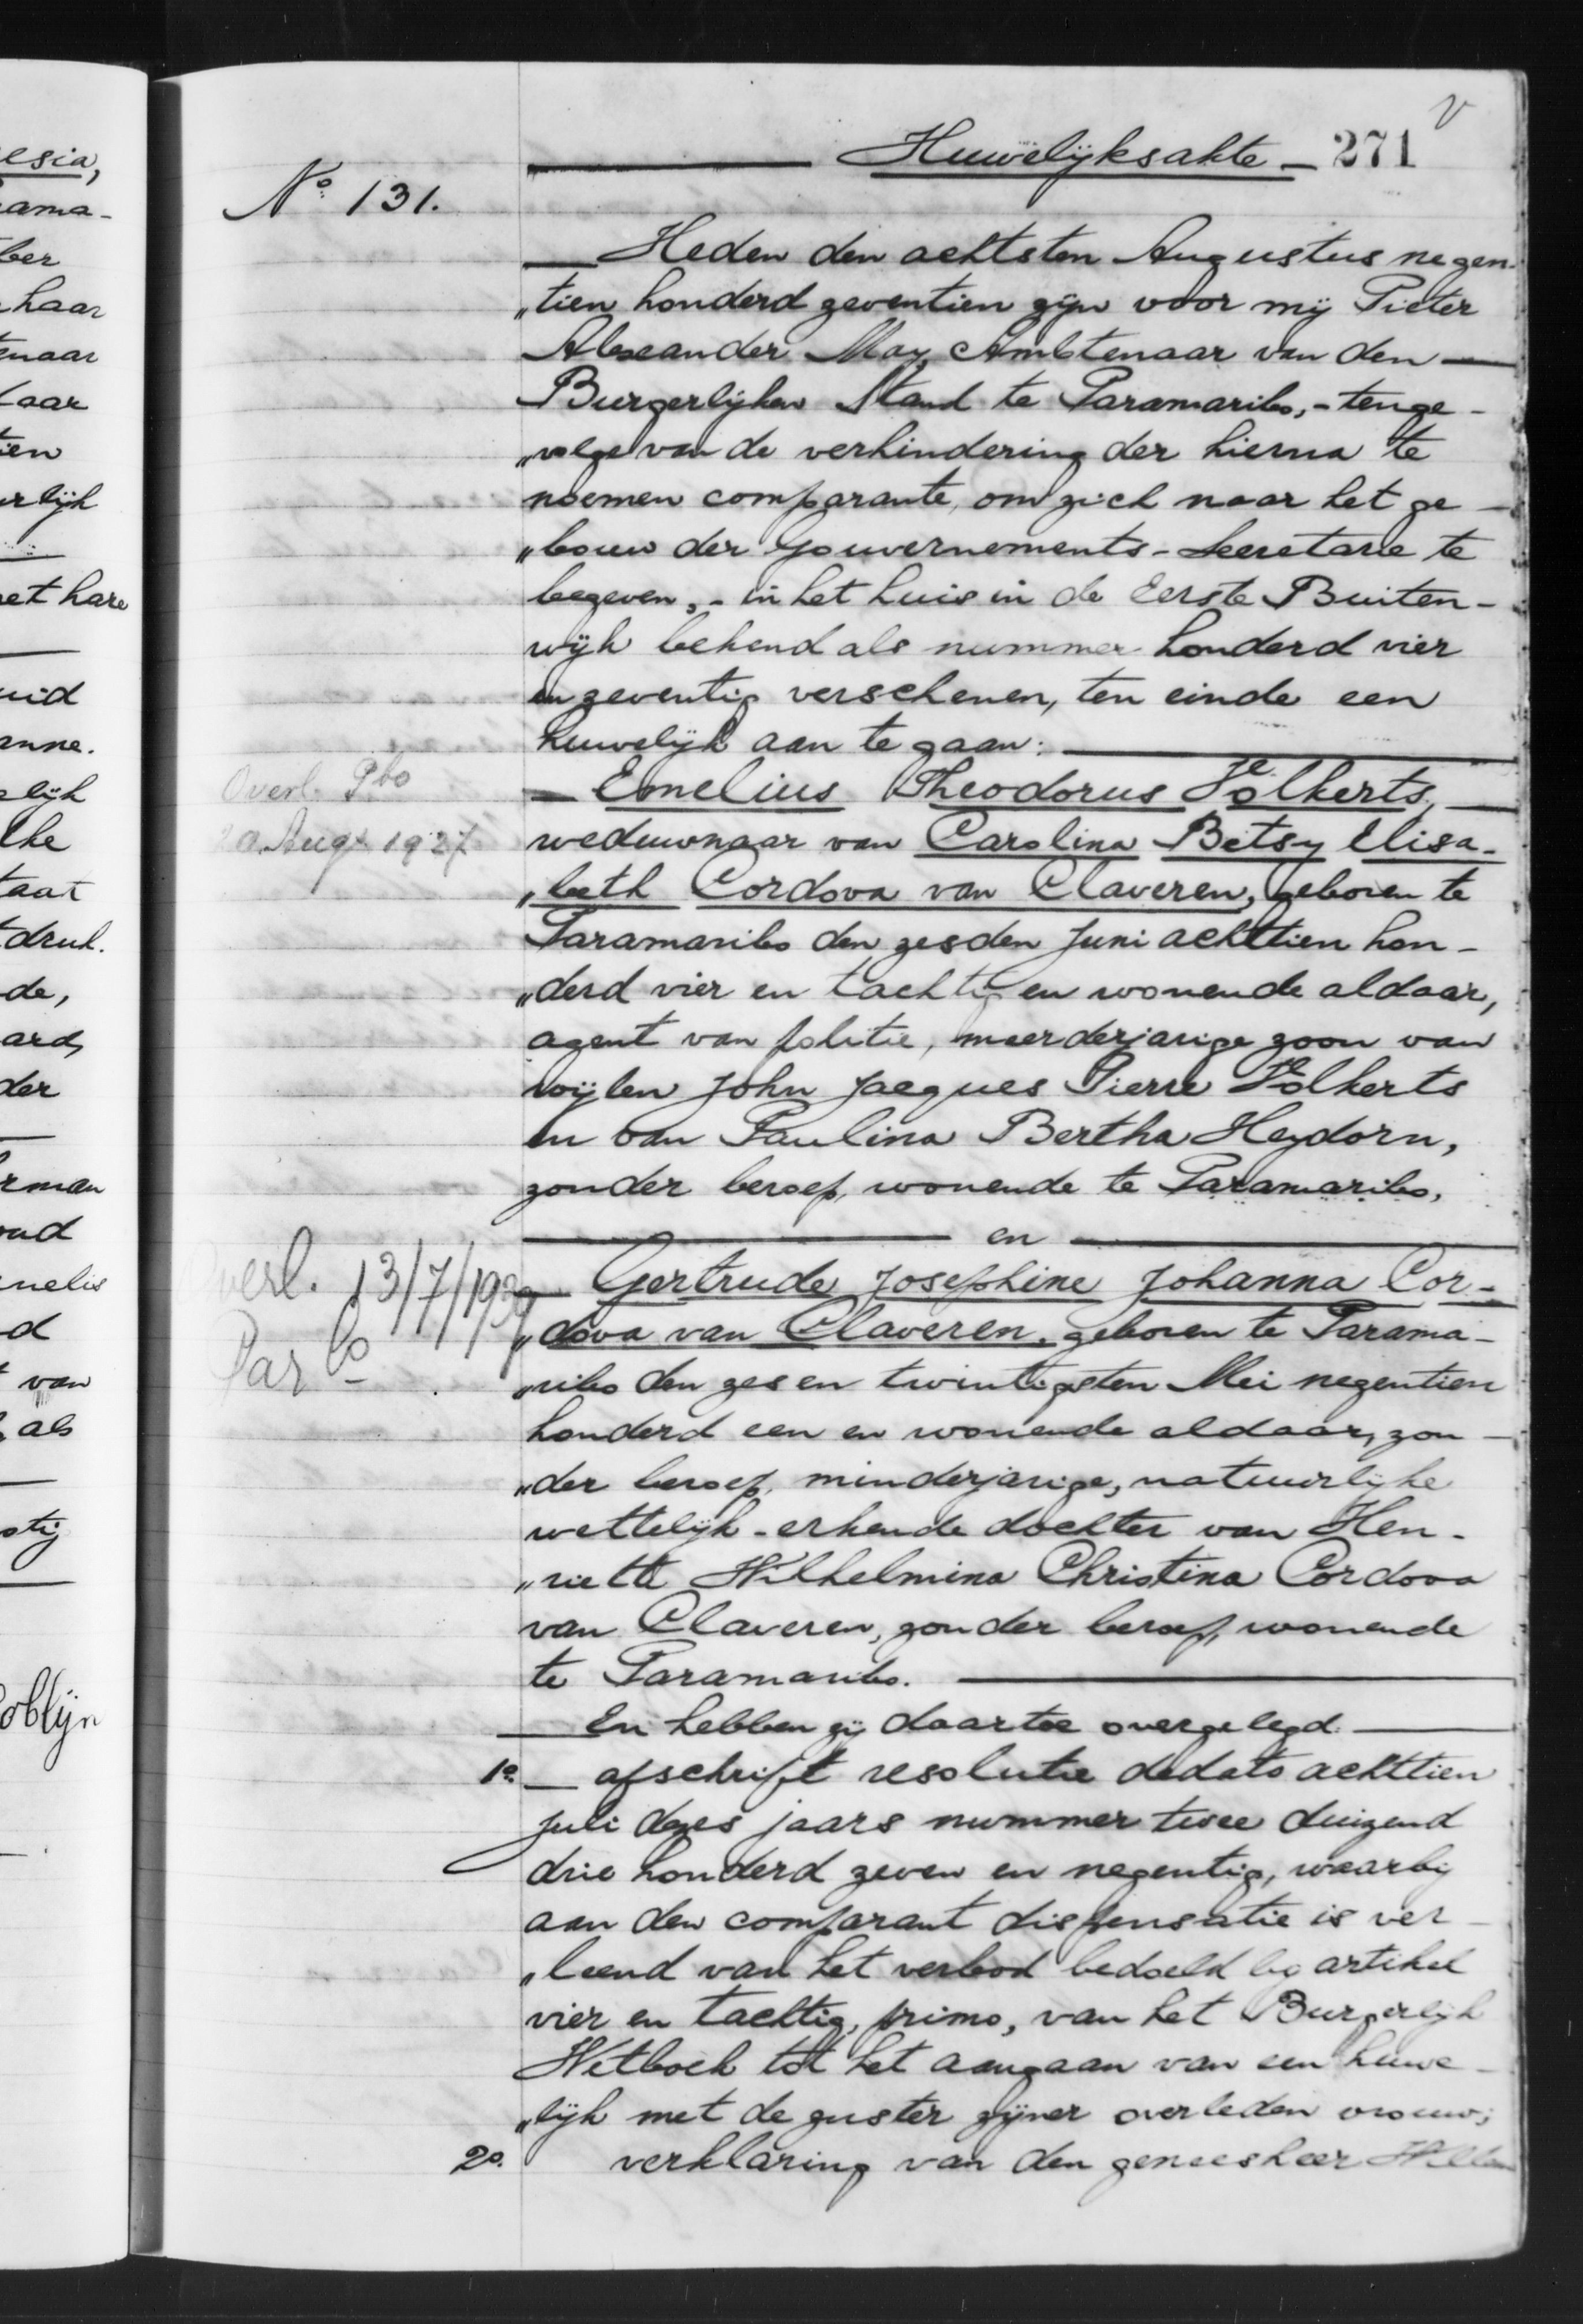 V
Huwelijksakte 271
No 131.
Heden den achtsten Augustus negen-
„tien honderd zeventien zijn voor mij Pieter
Alexander May, Ambtenaar van den
Burgerlijken Stand te Paramaribo, - tenge-
„volge van de verhindering der hierna te
noemen comparante, om zich naar het ge-
„bouw der Gouvernements-Secretarie te
begeven, - in het huis in de Eerste Buiten-
wijk bekend als nummer honderd vier
en zeventig verschenen, ten einde een
huwelijk aan te gaan:
Overl. Pbo
Aug. 1927
Emelius Theodorus Folkerts,
weduwnaar van Carolina Betsy Elisa-
„beth Cordova van Claveren, geboren te
Paramaribo den zesden Juni achttien hon-
„derd vier en tachtig en wonende aldaar,
agent van politie, meerderjarige zoon van
wijlen John Jacques Pierre Folkerts
en van Paulina Bertha Heydorn,
zonder beroep, wonende te Paramaribo,
en
Overl. 13/7/1939
Parbo
Gertrude Josephine Johanna Cor-
„dova van Claveren, geboren te Parama-
„ribo den zes en twintigsten Mei negentien
honderd een en wonende aldaar, zon-
„der beroep, minderjarige, natuurlijke
wettelijk-erkende dochter van Hen-
„riette Wilhelmina Christina Cordova
van Claveren, zonder beroep, wonende
te Paramaribo.
En hebben zij daartoe overgelegd:
1o. afschrift resolutie dedato achttien
Juli dezes jaars nummer twee duizend
drie honderd zeven en negentig, waarbij
aan den comparant dispensatie is ver-
„leend van het verbod bedoeld bij artikel
vier en tachtig, primo, van het Burgerlijk
Wetboek tot het aangaan van een huwe-
„lijk met de zuster zijner overleden vrouw;
2o. verklaring van den geneesheer Willem
esia,
ama-
ber
haar
enaar
aar
ien
rlijk
et hare
uid
anne.
elijk
lke
taat
druk.
de,
ard,
der
rman
oud
nelis
d
van
als
stig
oblijn